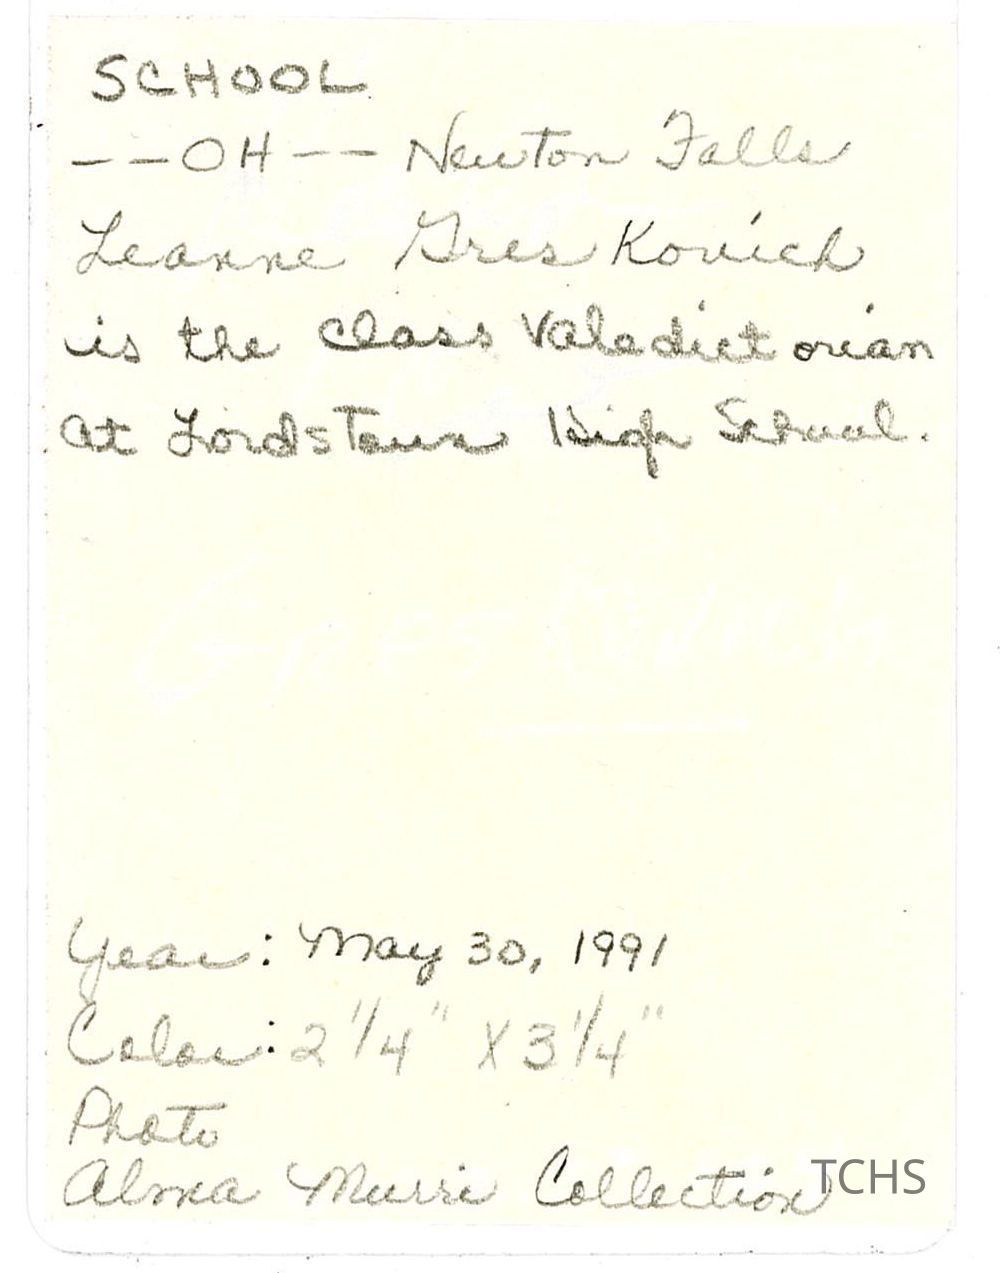 SCHOOL
--OH-- Newton Falls
Leanne GresKovich
is the class Valedictorian
at Lordstown High School.
GRESKOVICH
Year: May 30, 1991
Color: 2 1/4" X 3 1/4"
Photo
Alma Murri Collection
TCHS